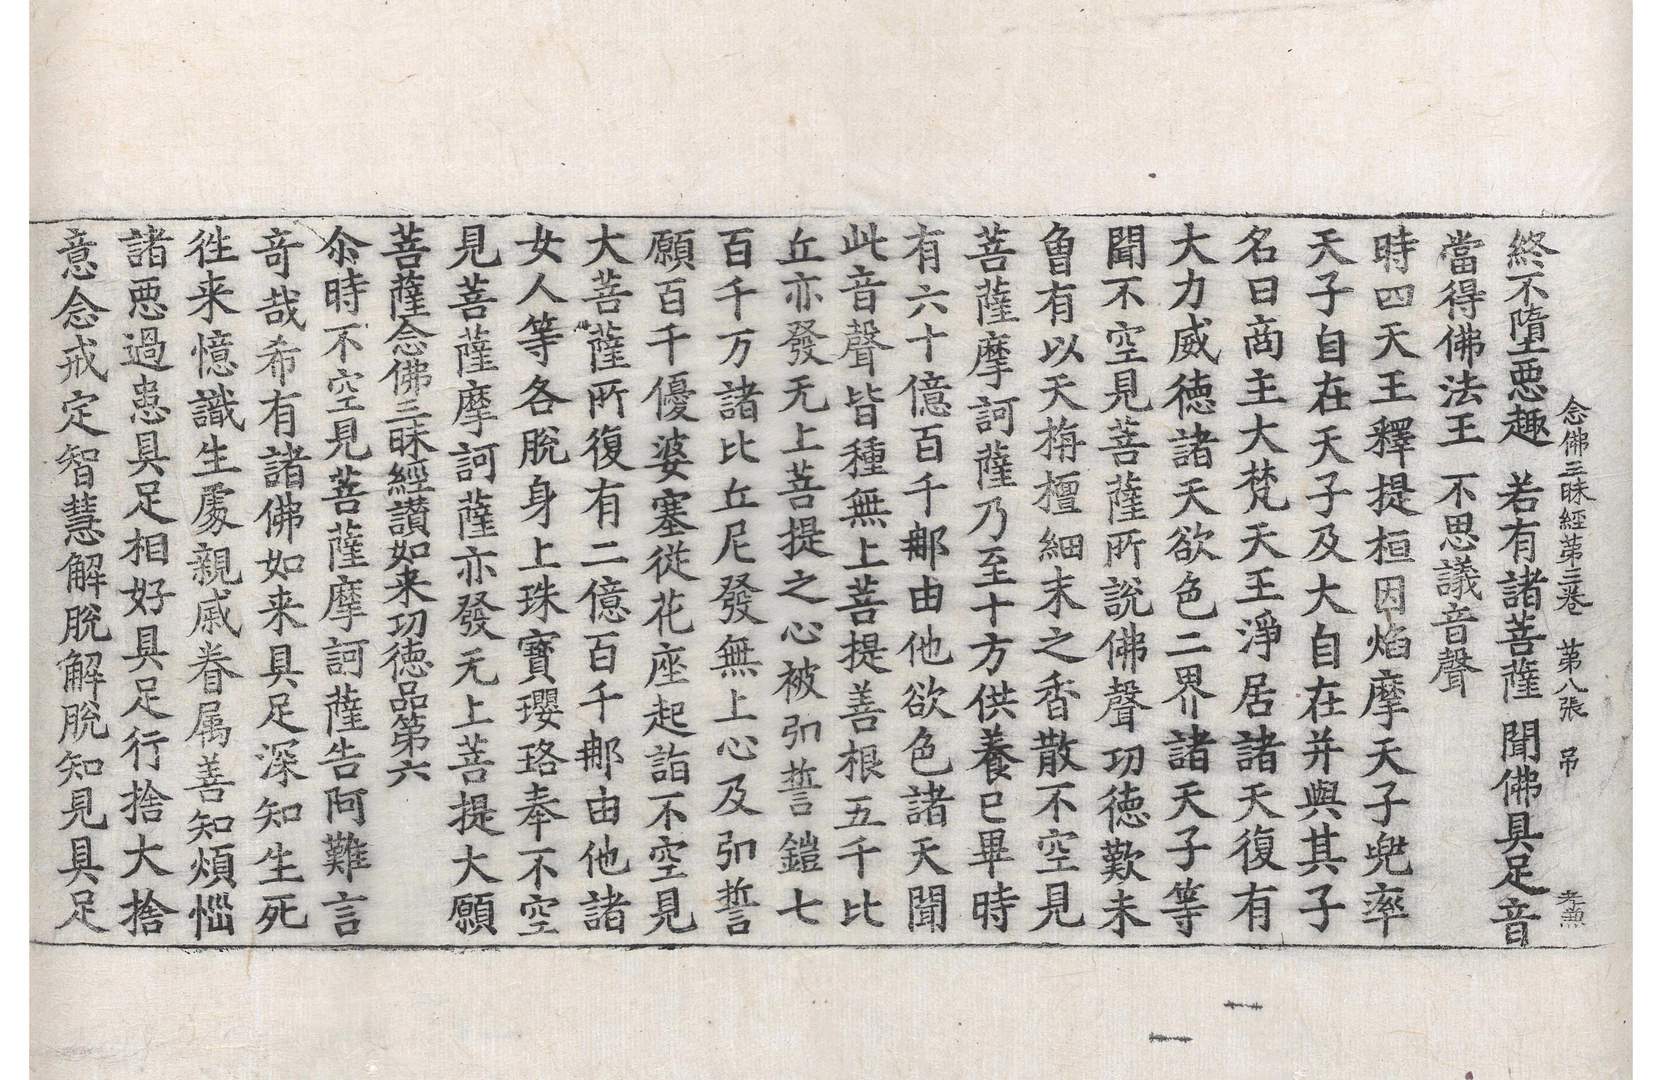 念佛三昧經第三卷 第八張 吊 孝兼
終不墮惡趣 若有諸菩薩 聞佛具足音
當得佛法王 不思議音聲
時四天王釋提桓因焰摩天子兜率
天子自在天子及大自在并與其子
名曰商主大梵天王淨居諸天復有
大力威德諸天欲色二界諸天子等
聞不空見菩薩所說佛聲功德歎未
曾有以天栴檀細末之香散不空見
菩薩摩訶薩乃至十方供養已畢時
有六十億百千那由他欲色諸天聞
此音聲皆種無上菩提善根五千比
丘亦發无上菩提之心被弘誓鎧七
百千万諸比丘尼發無上心及弘誓
願百千優婆塞從花座起詣不空見
大菩薩所復有二億百千那由他諸
女人等各脫身上珠寶瓔珞奉不空
見菩薩摩訶薩亦發无上菩提大願
菩薩念佛三昧經讃如来功德品第六
尒時不空見菩薩摩訶薩告阿難言
竒哉希有諸佛如来具足深知生死
徃来憶識生處親戚眷属善知煩惱
諸惡過患具足相好具足行捨大捨
意念戒定智慧解脫解脫知見具足